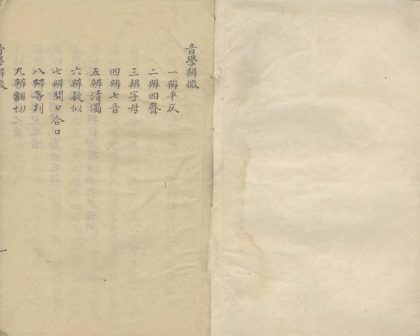 音學辨微
一辨平仄
二辨四聲
三辨字母
四辨七音
五辨清濁
六辨疑似
七辨開口合口
八辨等列
九辨翻切
音學辨微